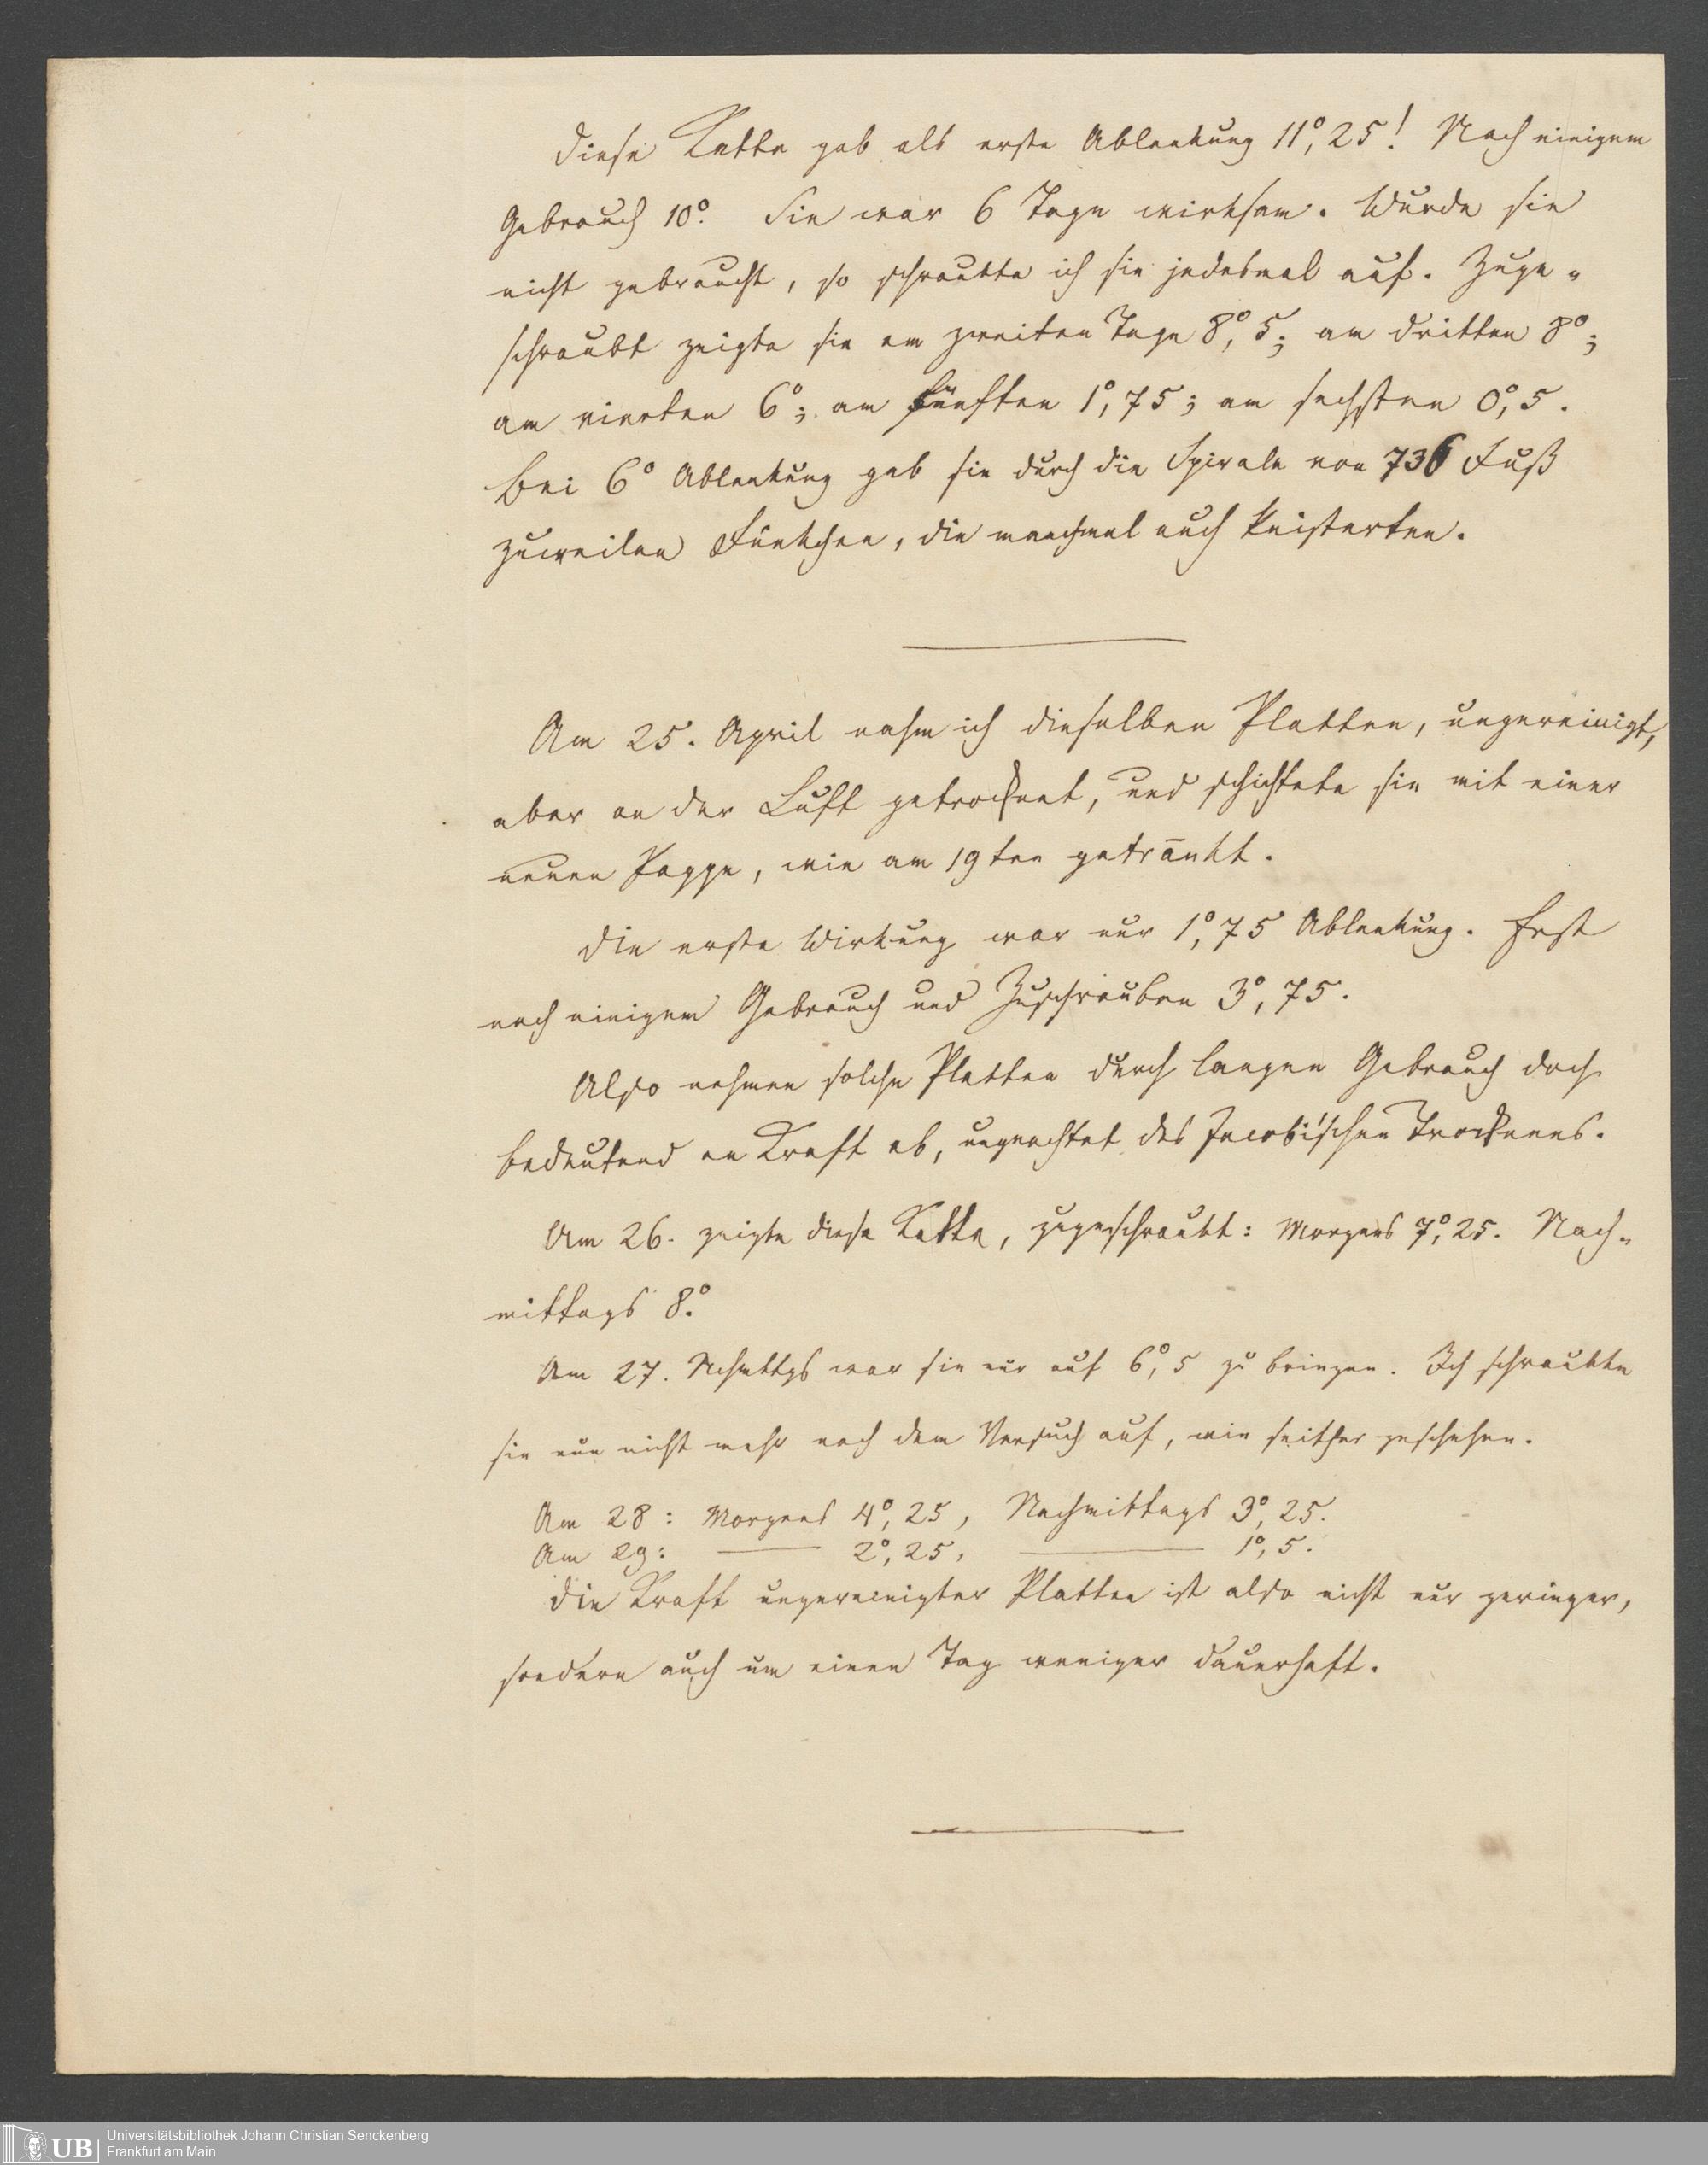 Diese Kette gab als erste Ablenkung 11°,25! Nach einigem
Gebrauch 10°. Sie war 6 Tage wirksam. Wurde sie
nicht gebraucht, so schraubte ich sie jedesmal auf. Zuge-
schraubt zeigte sie am zweiten Tage 8°,5; am dritten 8°;
am vierten 6°; am fünften 1°,75; am sechsten 0°,5.
Bei 6° Ablenkung gab sie durch die Spirale von 736 Fuß
zuweilen Fünkchen, die manchmal auch knisterten.
Am 25. April nahm ich dieselben Platten, ungereinigt,
aber an der Luft getrocknet, und schichtete sie mit einer
neuen Pappe, wie am 19ten getränkt.
Die erste Wirkung war nur 1°,75 Ablenkung. Erst
nach einigem Gebrauch und Zuschrauben 3°,75.
Also nehmen solche Platten durch langen Gebrauch doch
bedeutend an Kraft ab, ungeachtet des Jacobi'schen Trocknens.
Am 26. zeigte diese Kette, zugeschraubt: Morgens 7°,25. Nach-
mittags 8°.
Am 27. Nchmttgs war sie nur auf 6°,5 zu bringen. Ich schraubte
sie nun nicht mehr nach dem Versuch auf, wie seither geschehen.
Am 28: Morgens 4°,25, Nachmittags 3°,25.
Am 29: —— 2°,25, —— 1°,5.
Die Kraft ungereinigter Platten ist also nicht nur geringer,
sondern auch um einen Tag weniger dauerhaft.
UB
Universitätsbibliothek Johann Christian Senckenberg
Frankfurt am Main